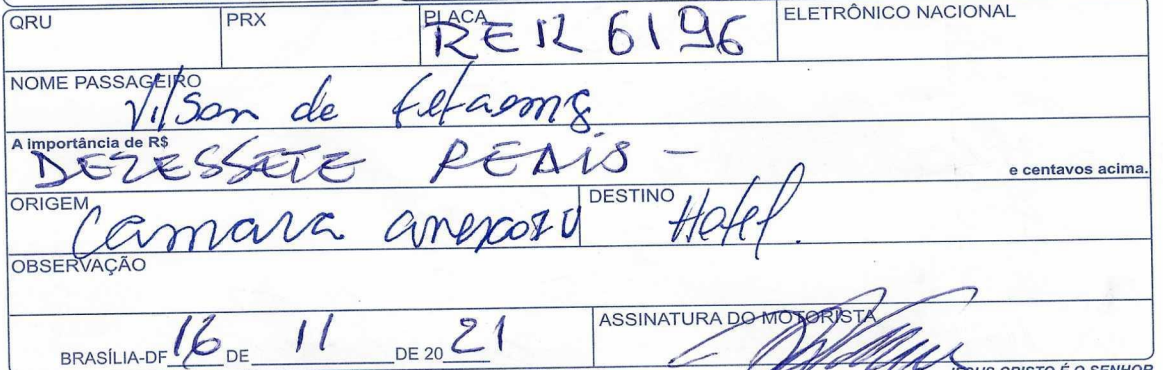 QRU PRX PLACA RER 6196 ELETRÔNICO NACIONAL
NOME PASSAGEIRO
Vilson de fetaemg
A importância de R$
DEZESSETE REAIS - e centavos acima.
ORIGEM Camara anexo IV DESTINO Hotel.
OBSERVAÇÃO
BRASÍLIA-DF 16 DE 11 DE 20 21 ASSINATURA DO MOTORISTA
JESUS CRISTO É O SENHOR